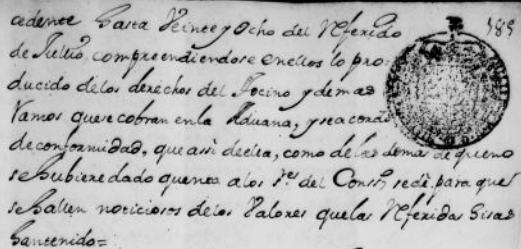 cedente hasta Veinte y Ocho del Referido
de Jullio, compreendiendose en ellos lo pro=
ducido de los derechos del Tocino y demas
Ramos que se cobran en la Aduana, y se acordo
de conformidad, que assi de ella, como de las demas de que no
se hubiere dado quenta a los S.res del Cons.o se dè, para que
se hallen noticiosos de los Valores que las Referidas Sisas
han tenido=